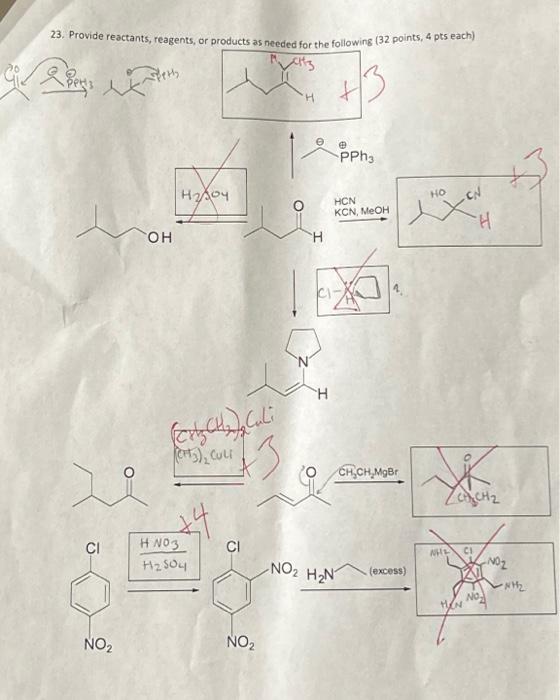 23. Provide reactants, reagents, or products as needed for the following (32 points, 4 pts each)
O
PPH3
H
CH3
H
+3
⊖ ⊕
PPh3
H2SO4
O
H
HCN
KCN, MeOH
HO CN
H
+3
OH
Cl-
H
N
H
(CH3CH2)2CuLi
(CH3)2CuLi
+3
O
O
CH3CH2MgBr
O
CH3CH2
+4
Cl
HNO3
H2SO4
Cl
NO2
H2N
(excess)
NH2 Cl
NO2
NH2
H2N NO2
NO2
NO2